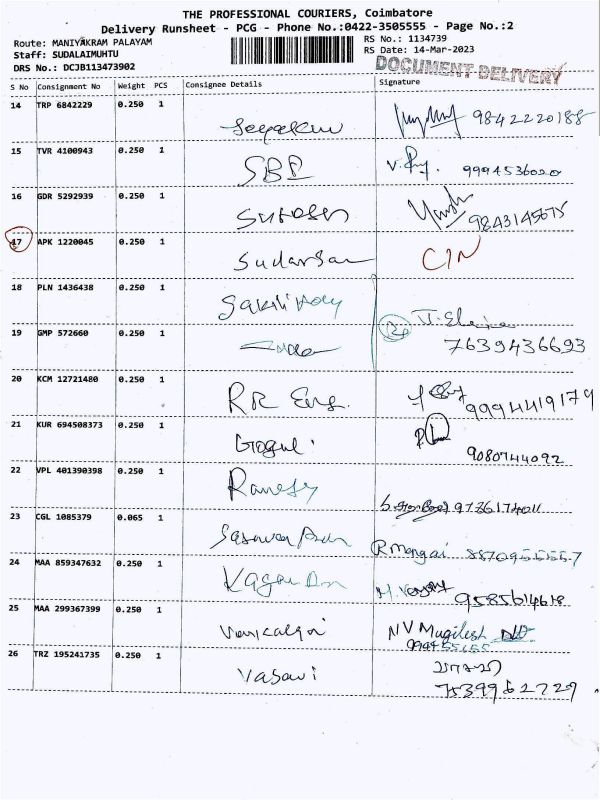 THE PROFESSIONAL COURIERS, Coimbatore
Delivery Runsheet - PCG - Phone No.:0422-3505555 - Page No.:2
Route: MANIYAKRAM PALAYAM
RS No.: 1134739
Staff: SUDALAIMUHTU
RS Date: 14-Mar-2023
DRS No.: DCJB113473902
DOCUMENT DELIVERY
S No Consignment No Weight PCS Consignee Details Signature
14 TRP 6842229 0.250 1 9842220188
15 TVR 4100943 0.250 1 SBI 9994536020
16 GDR 5292939 0.250 1 9843145675
17 APK 1220045 0.250 1 Sudarsan
18 PLN 1436438 0.250 1
19 GMP 572660 0.250 1 7639436693
20 KCM 12721480 0.250 1 RR Eng. 9994419179
21 KUR 694508373 0.250 1 Gogul. 9080744092
22 VPL 401390398 0.250 1 Ramesh
23 CGL 1085379 0.065 1 R Mangai 8870955557
24 MAA 859347632 0.250 1 9585614618
25 MAA 299367399 0.250 1 NV Mugilesh
26 TRZ 195241735 0.250 1 Vasavi
7539962729